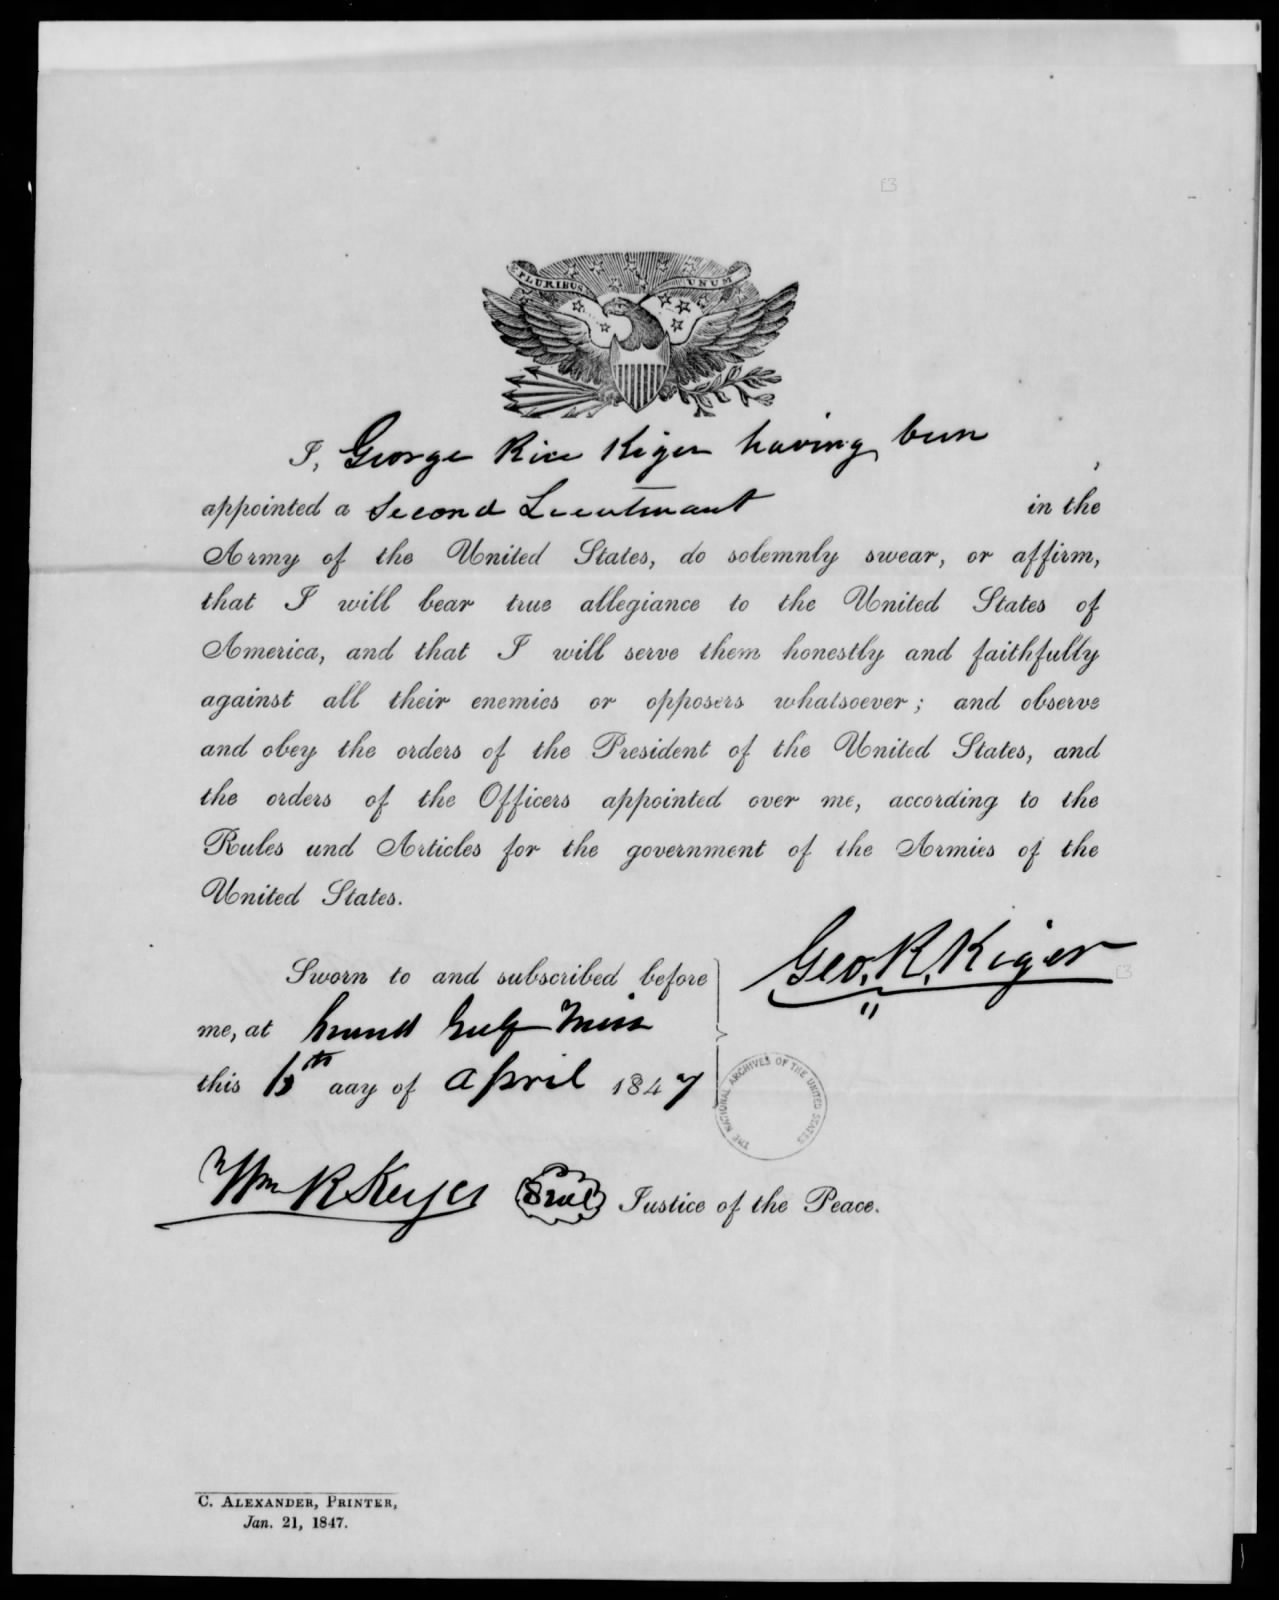 PLURIBUS UNUM
I, George Rice Kiger having been ,
appointed a Second Lieutenant in the
Army of the United States, do solemnly swear, or affirm,
that I will bear true allegiance to the United States of
America, and that I will serve them honestly and faithfully
against all their enemies or opposers whatsoever; and observe
and obey the orders of the President of the United States, and
the orders of the Officers appointed over me, according to the
Rules and Articles for the government of the Armies of the
United States.
Geo. R. Kiger
Sworn to and subscribed before
me, at Grand Gulf Miss
this th day of April 1847
THE NATIONAL ARCHIVES OF THE UNITED STATES
Wm R Keyes Seal Justice of the Peace.
C. ALEXANDER, PRINTER,
Jan. 21, 1847.